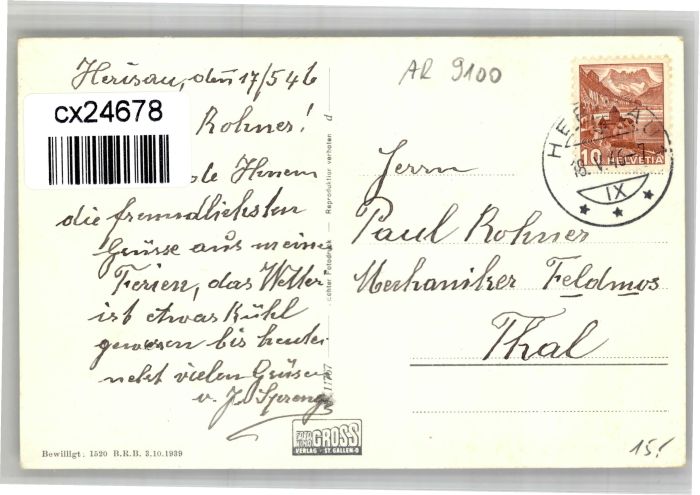 Herisau, den 17/5 46
cx24678
Rohner!
Ihnen
die freundlichsten
Grüsse aus meinen
Ferien, das Wetter
ist etwas Kühl
gewesen bis heute
nebst vielen Grüsen
v. J. Spreng
Bewilligt: 1520 B.R.B. 3.10.1939
Echter Fotodruck — Reproduktion verboten d
11767
FOTO
GROSS
VERLAG - ST. GALLEN-O
AR 9100
HERISAU 1
18.V.46-7
IX
10 HELVETIA
Herrn
Paul Rohner
Mechaniker Feldmos
Thal
15.-